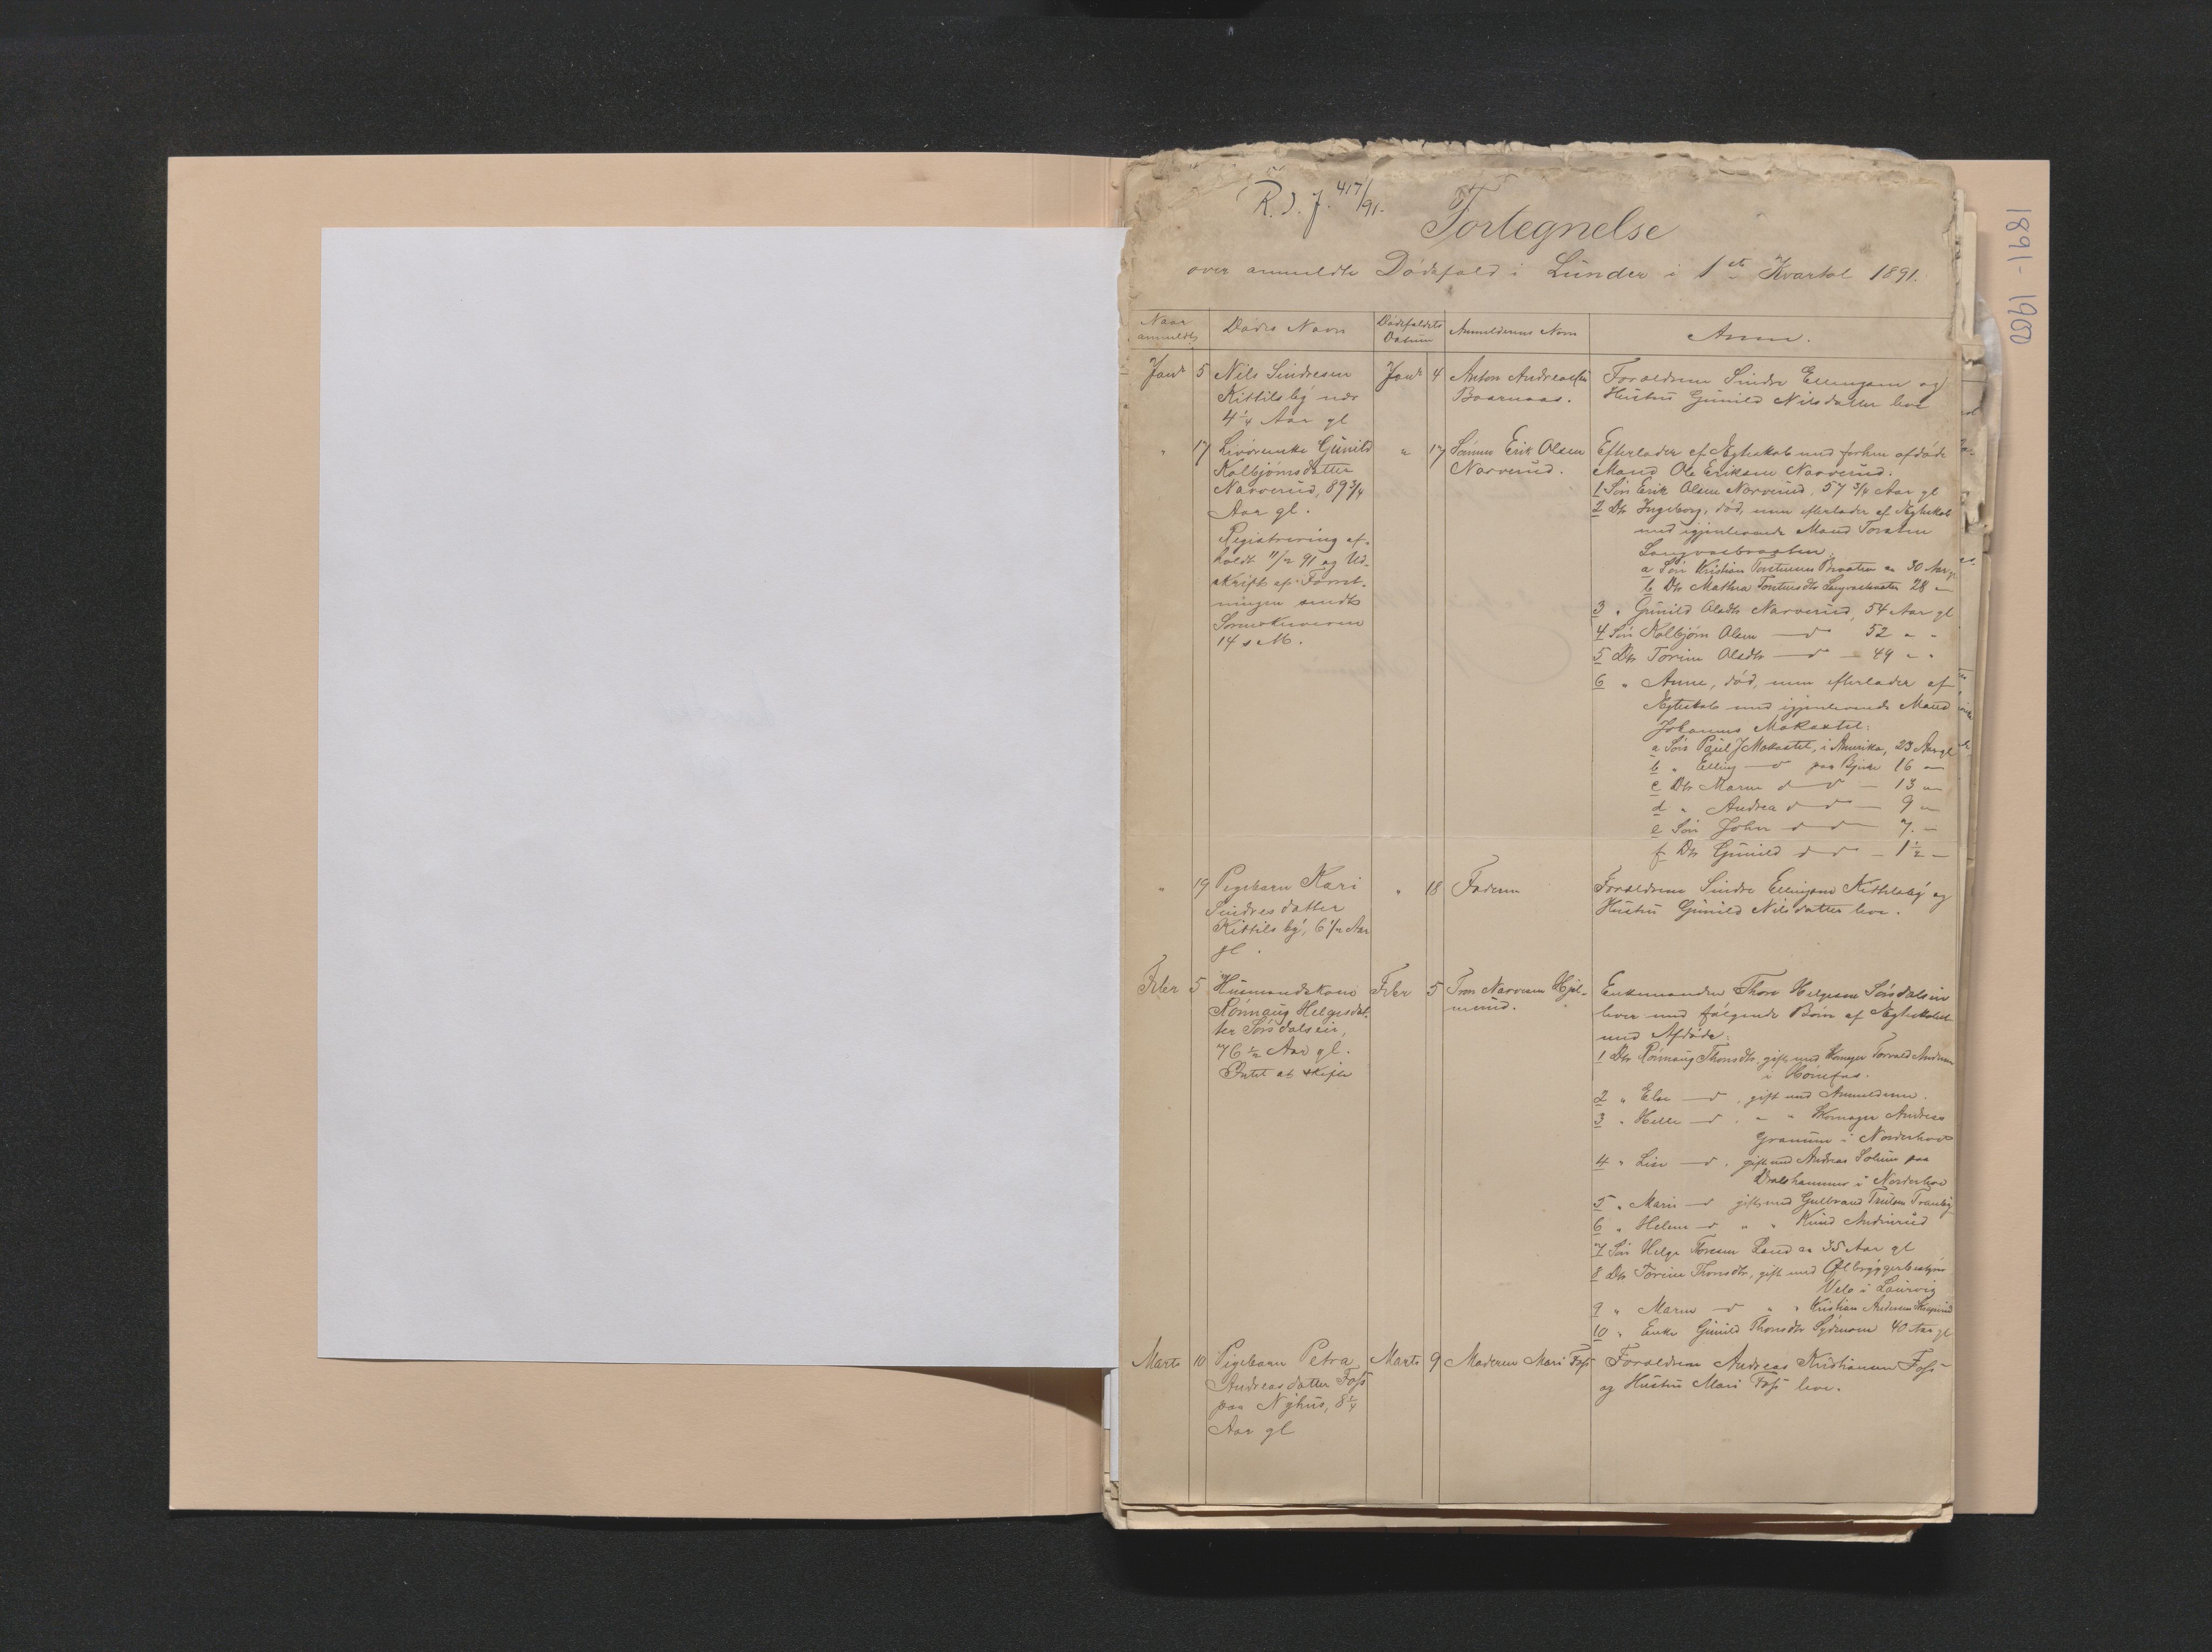 R. d. J. 417/91.
Fortegnelse
over anmeldte Dødsfald i Lunder i 1ste Kvartal 1891.
Naar anmeldt
Dødes Navn
Dødsfaldets Datum
Anmelderens Navn
Anm.
Janr 5
Nils Sindresen
Kittilsby nær
4 1/4 Aar gl
Janr 4
Anton Andreassen
Baarnaas.
Forældrene Sindre Ellingsen og
Hustru Gunild Nilsdatter leve
" 17
Livørenke Gunild
Kolbjørnsdatter
Narverud, 89 3/4
Aar gl.
Registrering af-
holdt 11/2 91 og Ud-
skrift af Forret-
ningen sendt
Sorenskriveren
14 s M.
" 17
Sønnen Erik Olsen
Narverud.
Efterlader af Ægteskab med forhen afdøde
Mand Ole Eriksen Narverud.
1 Søn Erik Olsen Narverud, 57 3/4 Aar gl
2 Dtr Ingeborg, død, men efterlader af Ægteskab
med igjenlevende Mand Torsten
Langvasbraaten:
a Søn Kristian Torstensen Braaten ca 30 Aar gl
b Dtr Mathea Torstensdtr Langvasbraaten 28 "
3 " Gunild Olsdtr Narverud, 54 Aar gl
4 Søn Kolbjørn Olsen — d — 52 " "
5 Dtr Torine Olsdtr — d — 49 " "
6 " Anne, død, men efterlader af
Ægteskab med igjenlevende Mand
Johannes Moksstel:
a Søn Paul J Moksstel, i Amerika, 23 Aar gl
b " Elling — d paa Bjerke 16 "
c Dtr Maren d d — 13 "
d " Andrea d d — 9 "
e Søn John d d — 7 "
f Dtr Gunild d d — 1 1/2 "
" 19
Pigebarn Kari
Sindresdatter
Kittilsby, 6 1/2 Aar
gl.
" 18
Faderen
Forældrene Sindre Ellingsen Kittilsby og
Hustru Gunild Nilsdatter leve.
Feber 5
Husmandskone
Rønnaug Helgesdat-
ter Sørsdalseie,
76 1/2 Aar gl.
Intet at skifte
Feber 5
Tron Narvesen Hjel-
merud.
Enkemanden Thore Helgesen Sørsdalseie
lever med følgende Børn af Ægteskabet
med Afdøde:
1 Dtr Rønnaug Thorsdtr. gift med Skomager Torvald Andersen
i Hønefos.
2 " Else — d, gift med Anmelderen.
3 " Helle — d, " " Skomager Andreas
Granum i Norderhov
4 " Lise — d, gift med Andreas Solum paa
i Norderhov
5 " Mari — d gift med Gulbrand Trulsen Tranby
6 " Helene — d " " Knud
7 Søn Helge Thoresen Sand ca 35 Aar gl
8 Dtr Torine Thorsdtr, gift med Ølbryggerbestyrer
Velo i Laurvig
9 " Maren — d " " Kristian Andersen
10 " Enke Gunild Thorsdtr 40 Aar gl
Marts 10
Pigebarn Petra
Andreasdatter Foss
paa Nyhus, 8 1/4
Aar gl
Marts 9
Moderen Mari Foss
Forældrene Andreas Kristiansen Foss
og Hustru Mari Foss leve.
1891 - 1900